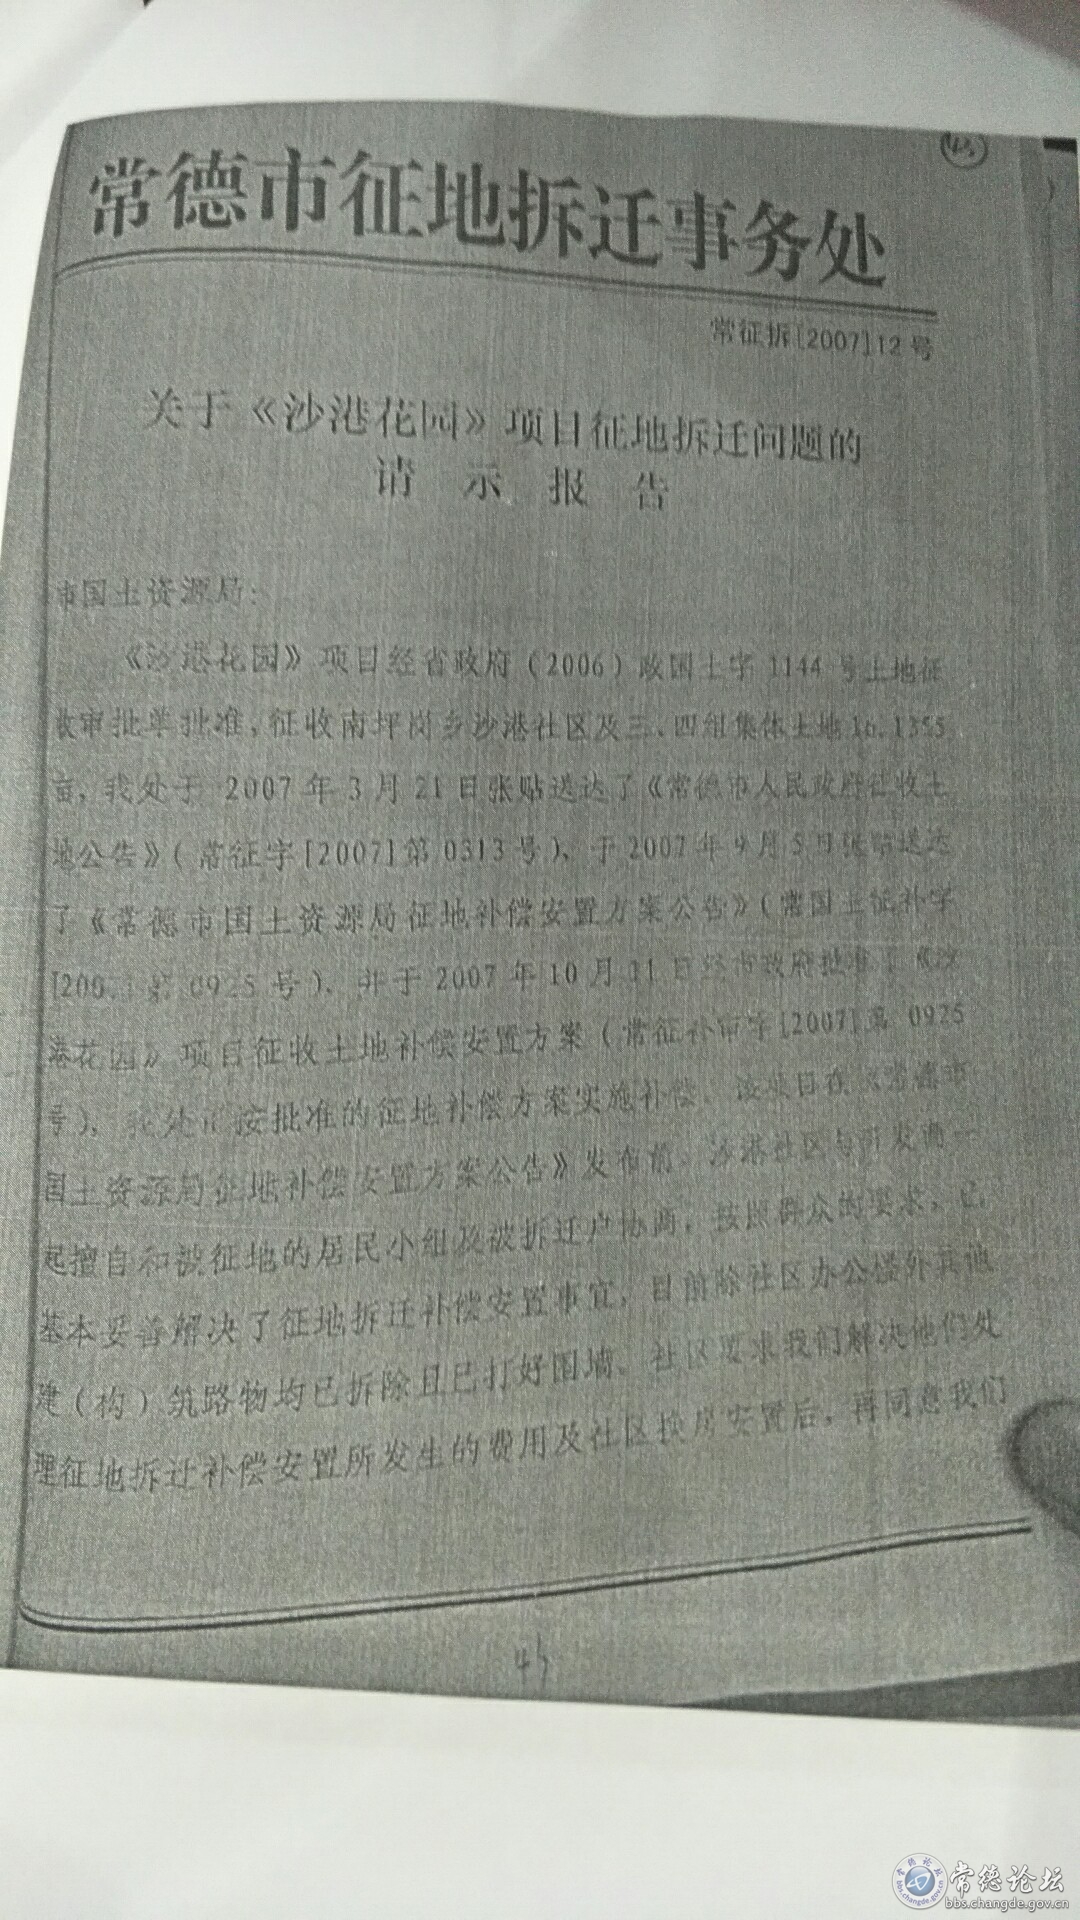 常德市征地拆迁事务处
常征拆[2007]12号
关于《沙港花园》项目征地拆迁问题的
请示报告
市国土资源局：
《沙港花园》项目经省政府（2006）政国土字1144号土地征
收审批单批准，征收南坪岗乡沙港社区及三、四组集体土地16.1355
亩，我处于2007年3月21日张贴送达了《常德市人民政府征收土
地公告》（常征字[2007]第0313号）、于2007年9月5日张贴送达
了《常德市国土资源局征地补偿安置方案公告》（常国土征补字
[200 第0925号）、并于2007年10月11日经市政府批准了《沙
港花园》项目征收土地补偿安置方案（常征补审字[2007]第0925
号），我处 按批准的征地补偿方案实施补偿。该项目在《常德市
国土资源局征地补偿安置方案公告》发布前，沙港社区与开发商一
起擅自和被征地的居民小组及被拆迁户协商，按照群众的要求，已
基本妥善解决了征地拆迁补偿安置事宜，目前除社区办公楼外其他
建（构）筑路物均已拆除且已打好围墙。社区要求我们解决他们处
理征地拆迁补偿安置所发生的费用及社区换房安置后，再同意我们
45
常德论坛
bbs.changde.gov.cn